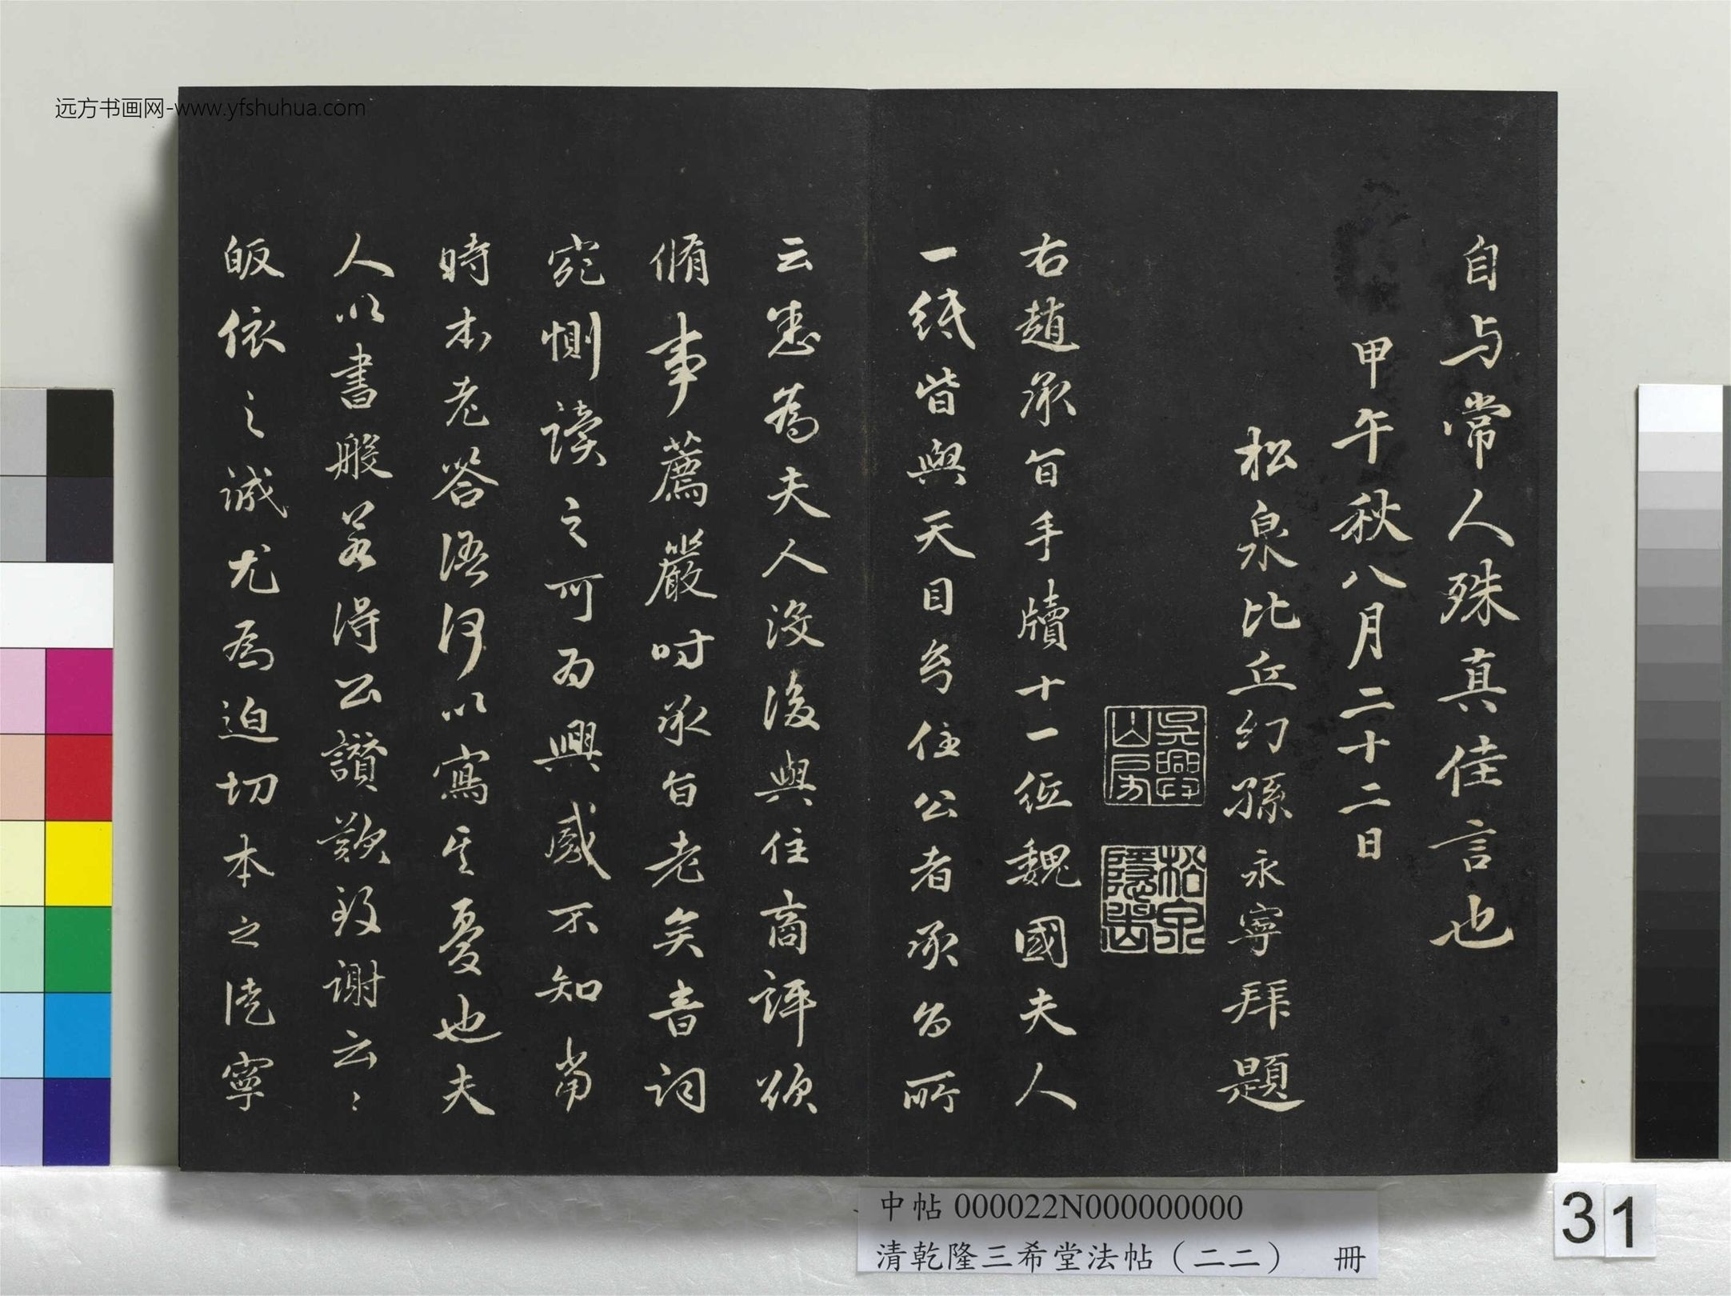 远方书画网-www.yfshuhua.com
自与常人殊真佳言也
甲午秋八月二十二日
松泉比丘幻孫永寧拜題
吳興山房
松泉
右趙承旨手牘十一紙魏國夫人
一紙皆與天目幻住公者承旨所
云悉為夫人沒後與住商評頌
脩事薦嚴時承旨老矣音詞
悲惻讀之可為興感不知當
時本老答語何以寫其憂也夫
人以書般若得公讚歎致謝云々
皈依之誠尤為迫切本之後寧
中帖 000022N000000000
清乾隆三希堂法帖（二二） 冊
31